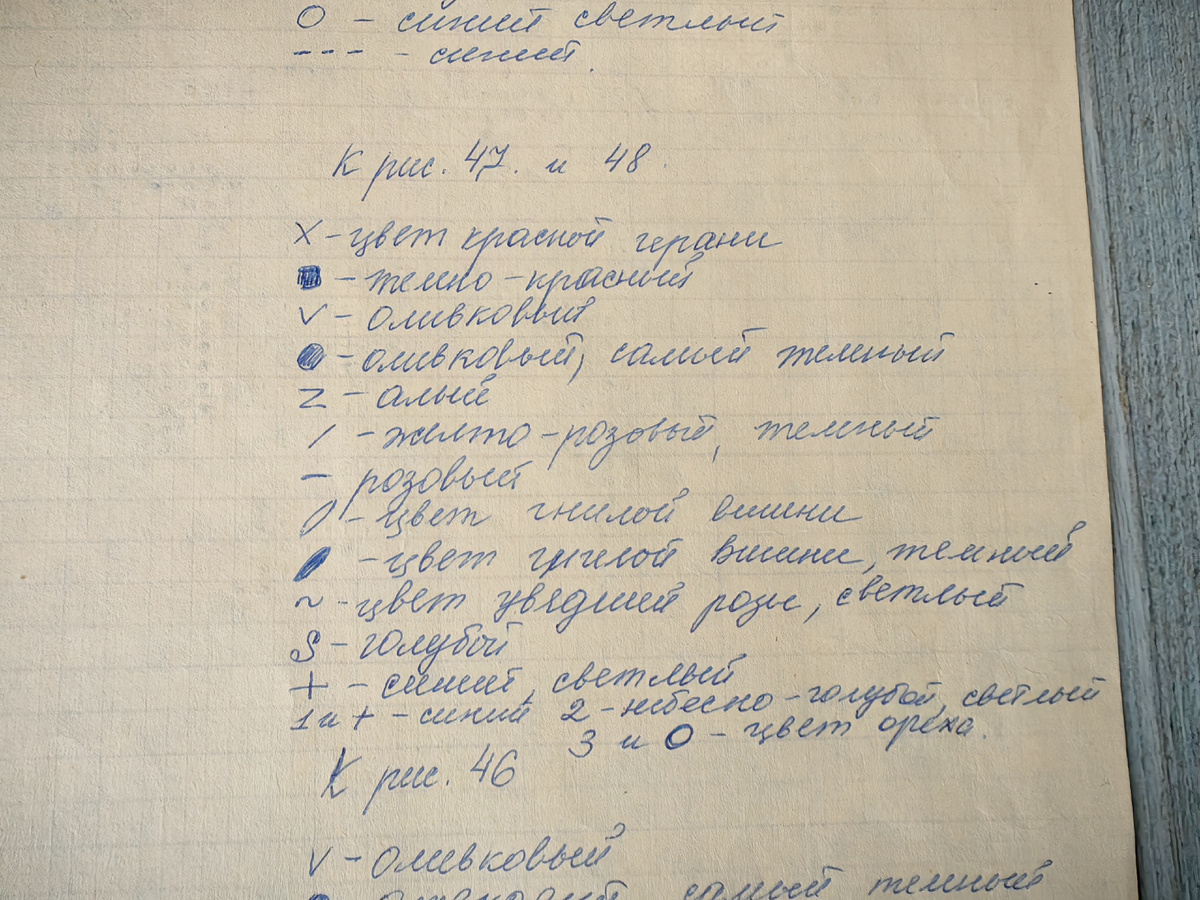 O - синий светлый
--- - синий.
К рис. 47. и 48.
X - цвет красной герани
■ - темно-красный
V - оливковый
● - оливковый, самый темный
Z - алый
/ - желто-розовый, темный
- розовый
0 - цвет гнилой вишни
⬮ - цвет гнилой вишни, темный
~ - цвет увядшей розы, светлый
S - голубой
+ - синий, светлый
1 и + - синий 2 - небесно-голубой, светлый
3 и O - цвет ореха.
К рис. 46
V - оливковый
● - оливковый, самый темный